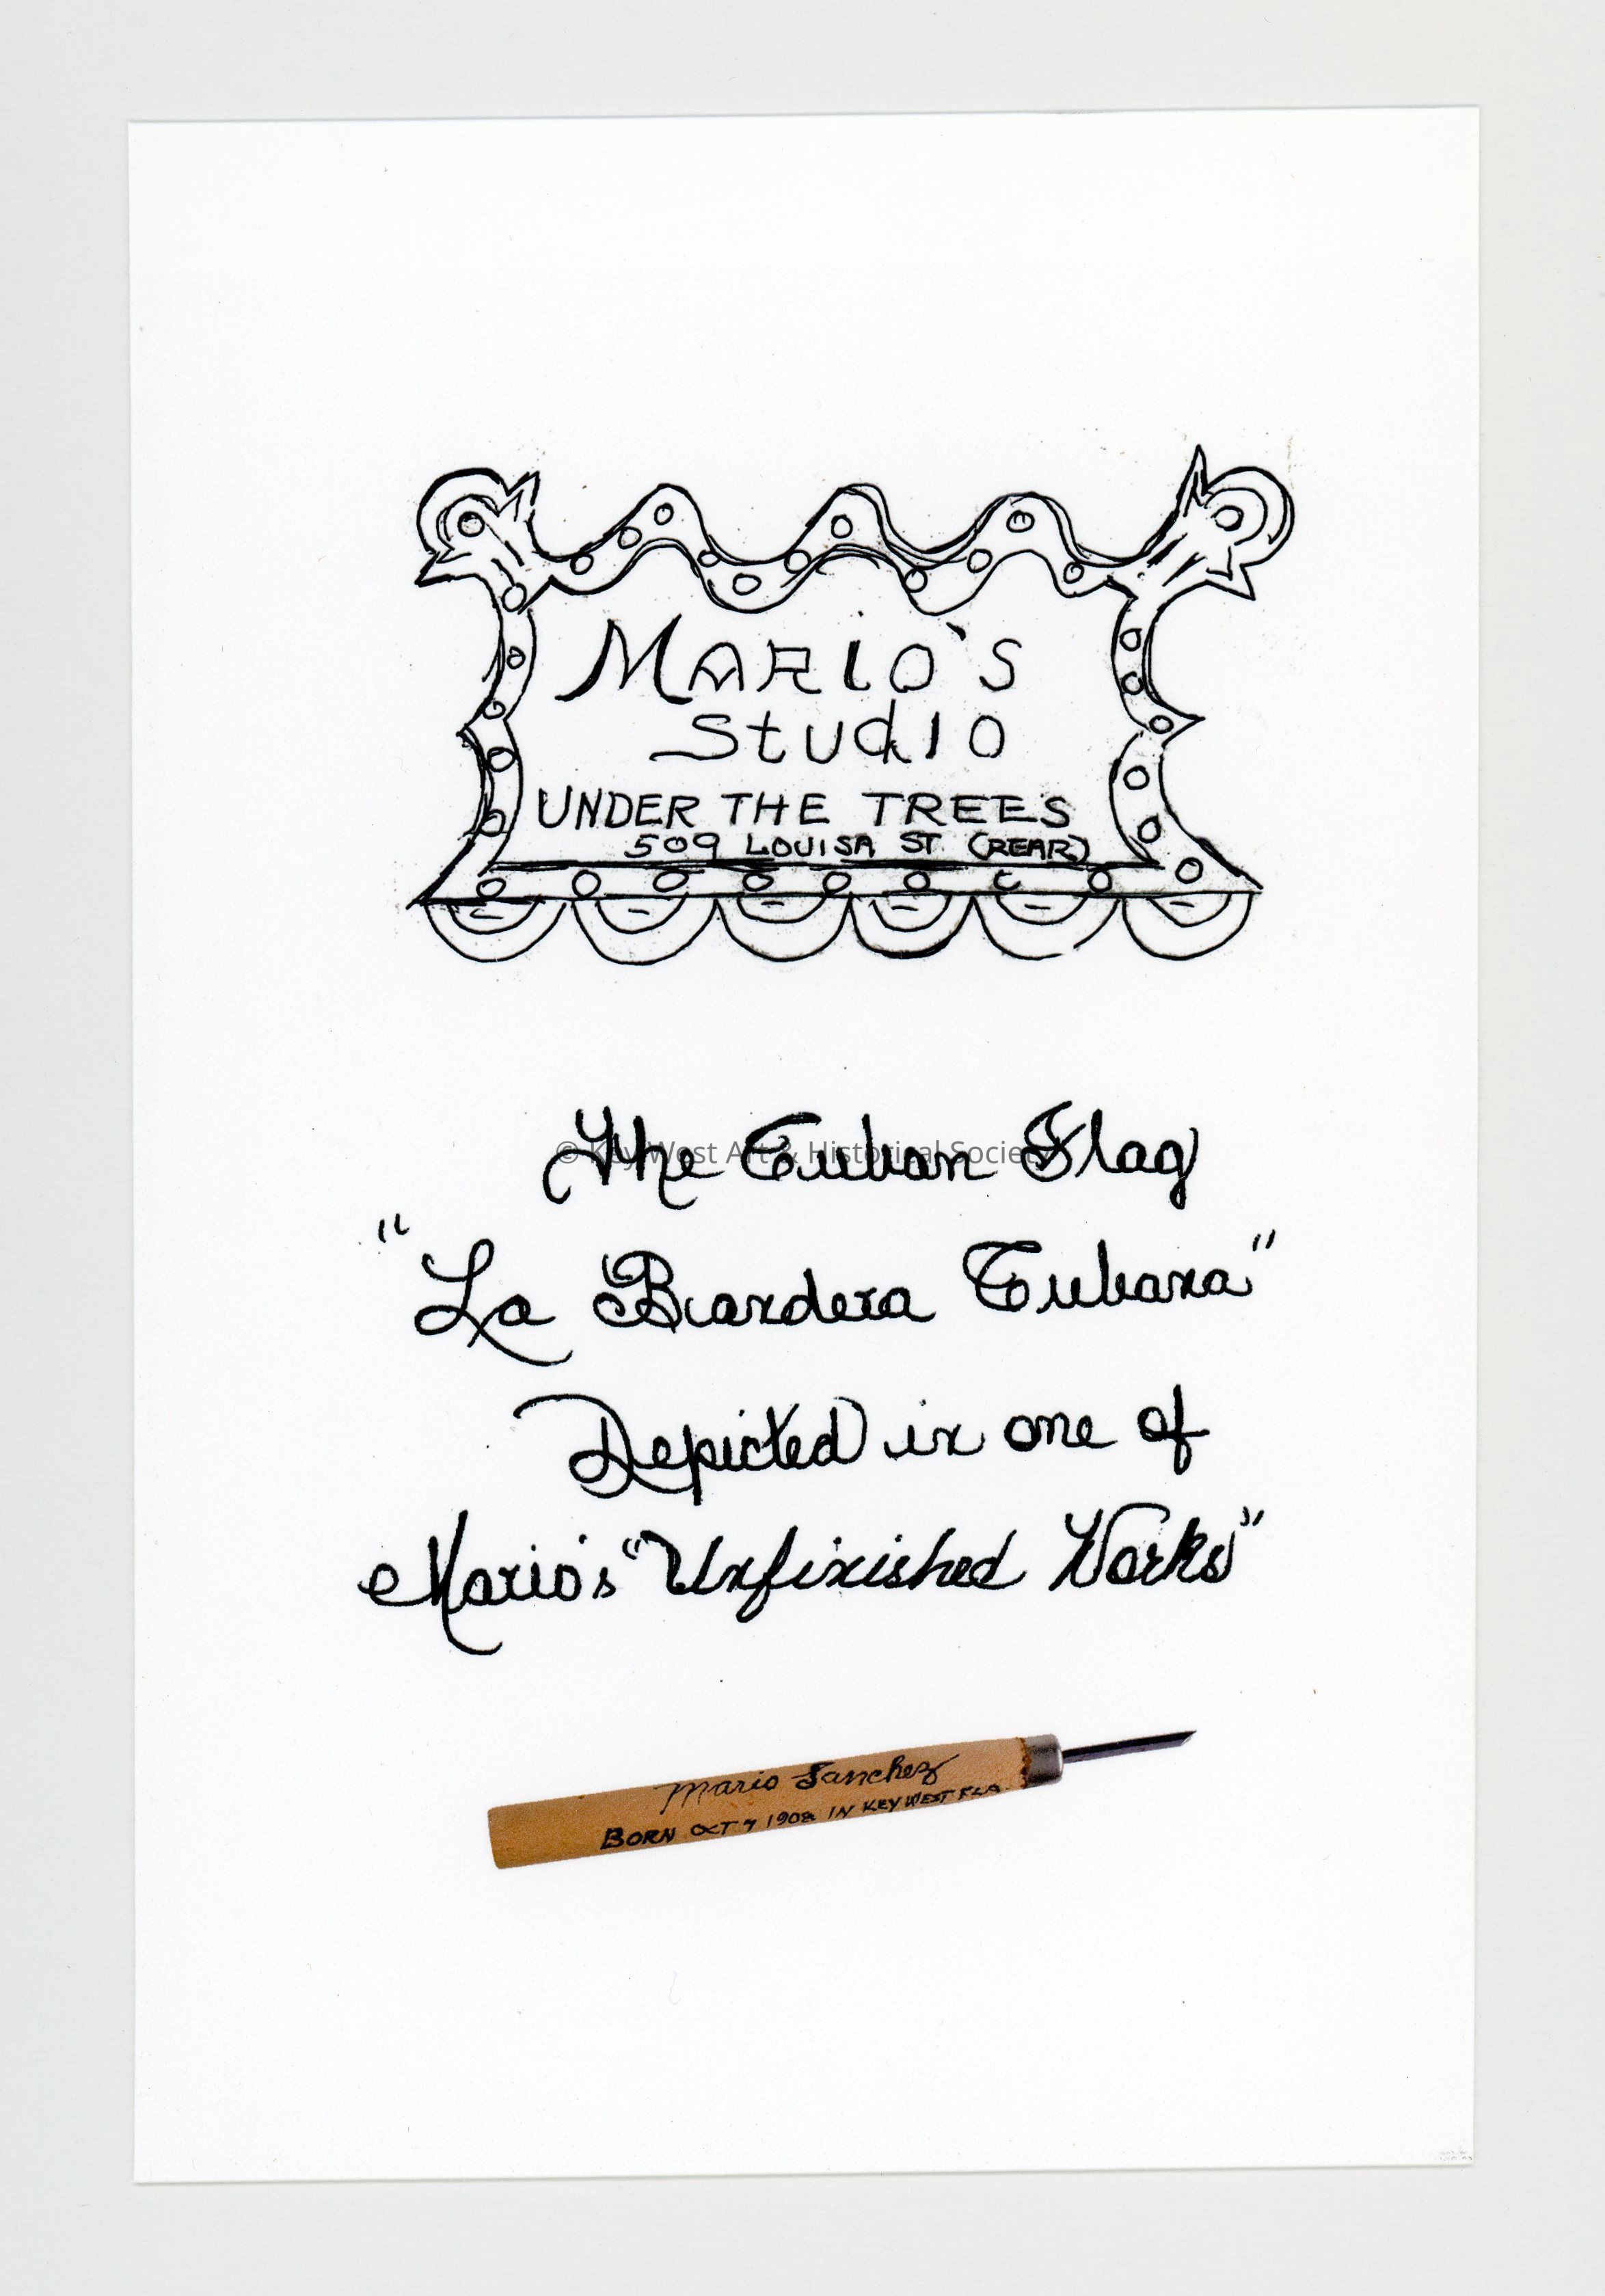 MARIO'S
Studio
UNDER THE TREES
509 LOUISA ST. (REAR)
The Cuban Flag
© Key West Art & Historical Society
"La Bandera Cubana"
Depicted in one of
Mario's "Unfinished Works"
Mario Sanchez
BORN OCT 7 1908 IN KEY WEST FLA